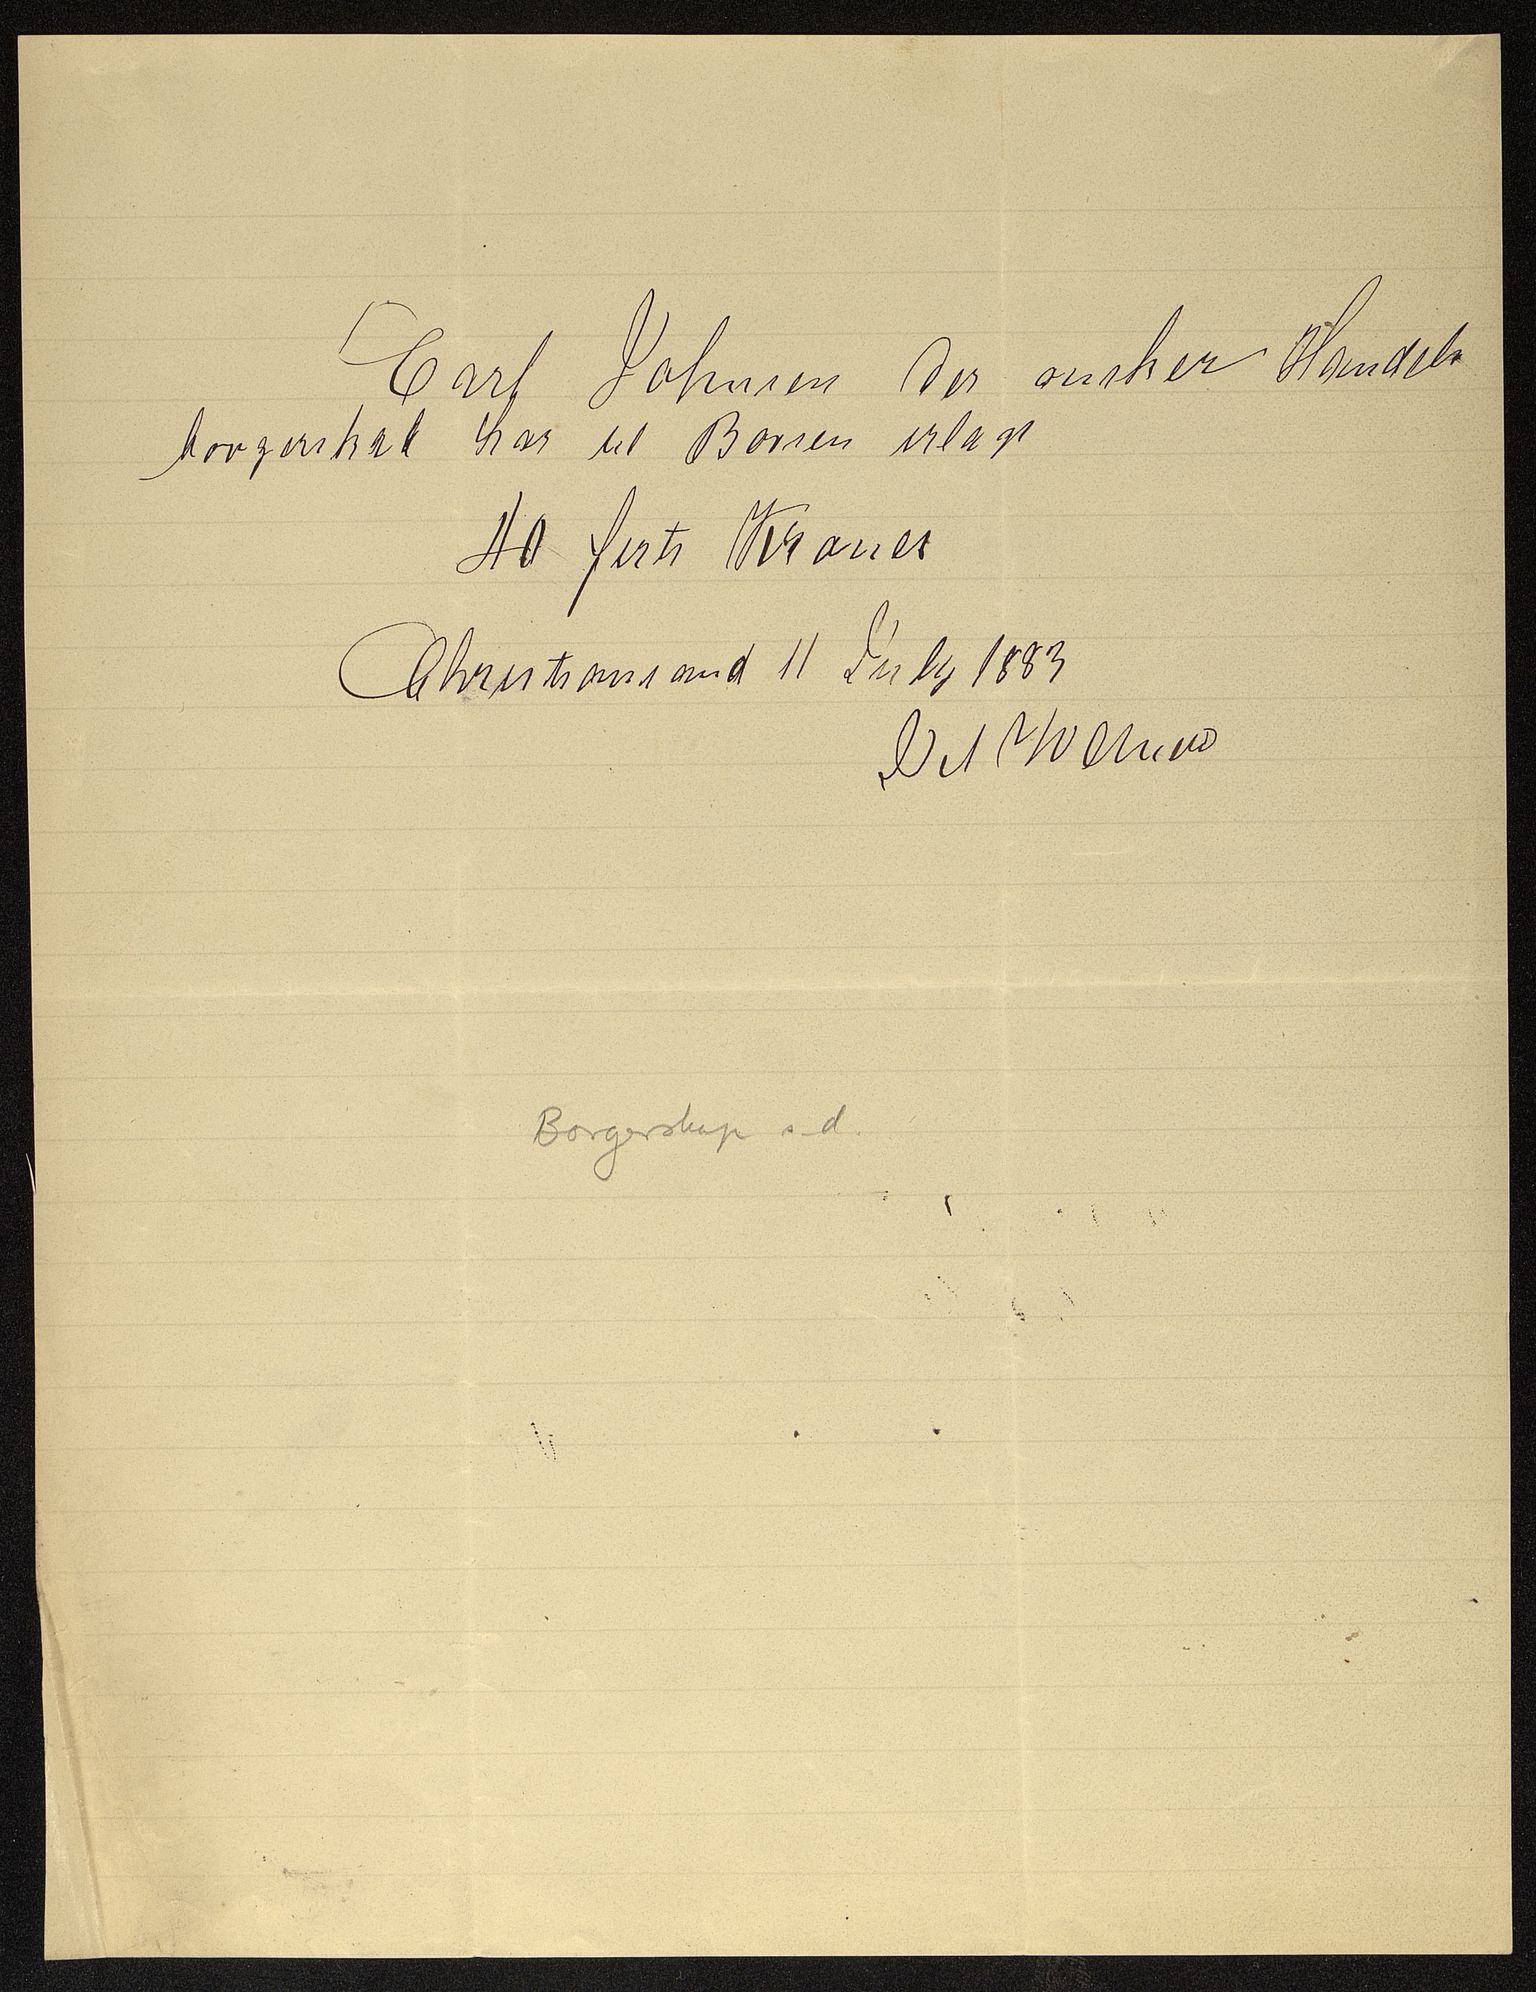 Carl Johnsen der onsker Handels
borgerskab har til Borsen erlagt
40 firti Kroner
Christianssand 11 July 1883
Borgerskap s. d.